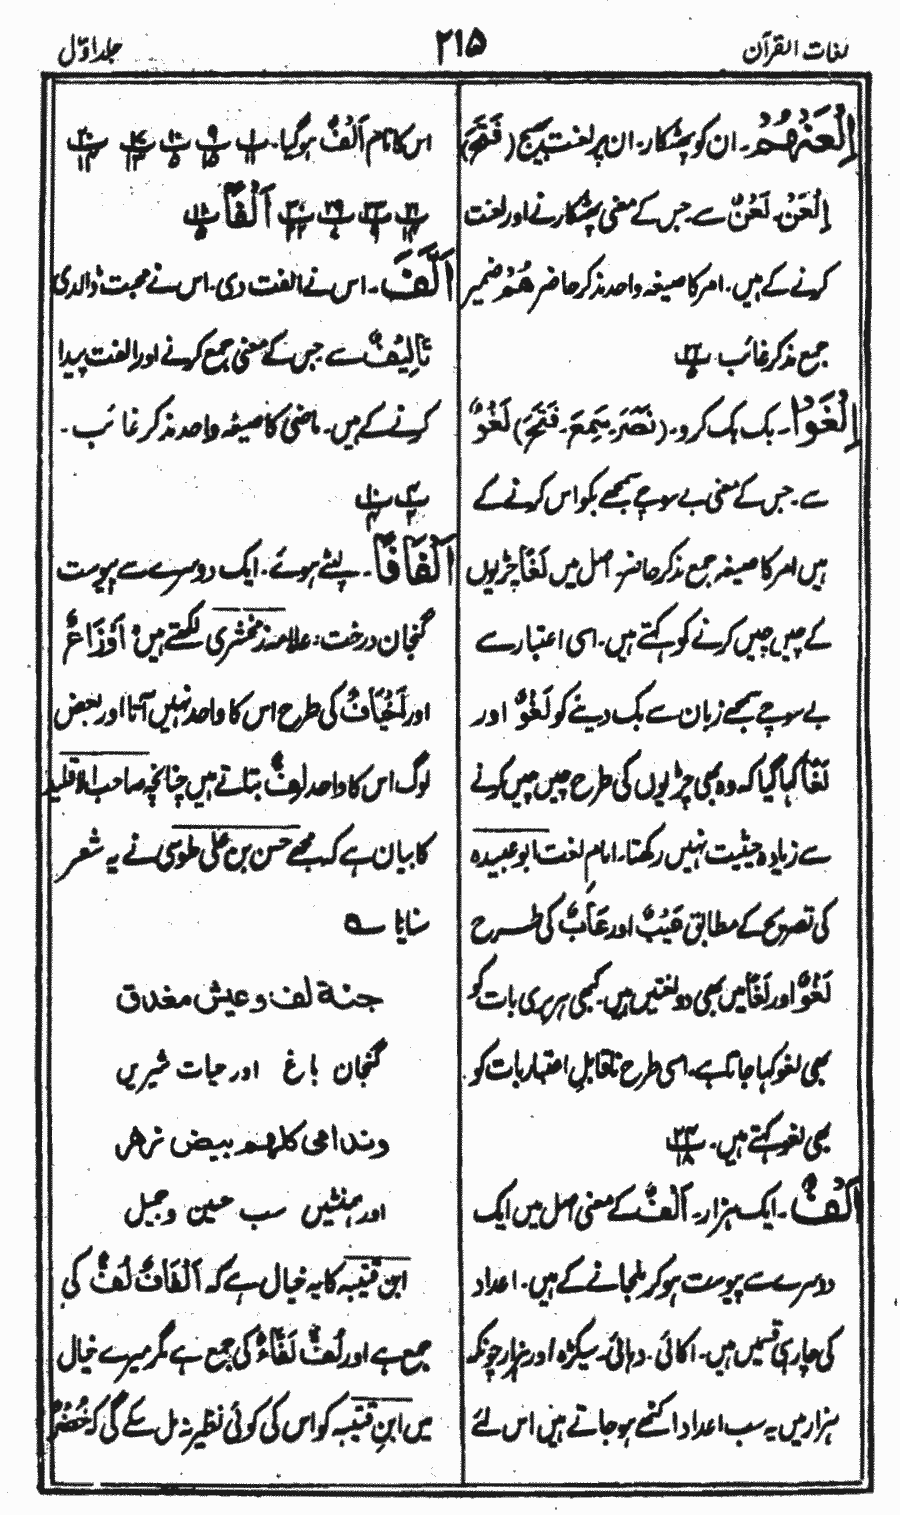 لغات القرآن
۲۱۵
جلد اوّل
اِلْعَنْهُمْ۔ ان کو پھٹکار۔ ان پر لعنت بھیج (فَتَحَ)
اِلْعَنْ۔ لَعْنٌ سے۔ جس کے معنی پھٹکارنے اور لعنت
کرنے کے ہیں۔ امر کا صیغہ واحد مذکر حاضر ھُمْ ضمیر
جمع مذکر غائب
اِلْغَوْا۔ بک بک کرو۔ (نَصَرَ۔ سَمِعَ۔ فَتَحَ) لَغْوٌ
سے۔ جس کے معنی بے سوچے سمجھے بکو اس کرنے کے
ہیں امر کا صیغہ جمع مذکر حاضر۔ اصل میں لَغَا چڑیوں
کے چیں چیں کرنے کو کہتے ہیں۔ اسی اعتبار سے
بے سوچے سمجھے زبان سے بک دینے کو لَغْوٌ اور
لَغًا کہا گیا کہ وہ بھی چڑیوں کی طرح چیں چیں کرنے
سے زیادہ حیثیت نہیں رکھتا۔ امام لغت ابو عبیدہ
کی تصریح کے مطابق عَیْبٌ اور عَابٌ کی طرح
لَغْوٌ اور لَغًا میں بھی دو لغتیں ہیں۔ کبھی ہر بری بات کو
بھی لغو کہا جاتا ہے۔ اسی طرح ناقابلِ اعتبار بات کو
بھی لغو کہتے ہیں۔ ۲۴ ۱۸
اَلْفٌ۔ ایک ہزار۔ اَلْفٌ کے معنی اصل میں ایک
دوسرے سے پیوست ہو کر ملجانے کے ہیں۔ اعداد
کی چار ہی قسمیں ہیں۔ اکائی۔ دہائی۔ سیکڑہ اور ہزار چونکہ
ہزار میں یہ سب اعداد اکٹھے ہو جاتے ہیں اس لئے
اس کا نام اَلْفٌ ہو گیا۔
اَلْفًا
اَلَّفَ۔ اس نے الفت دی۔ اس نے محبت ڈالدی
تَالِیْفٌ سے جس کے معنی جمع کرنے اور الفت پیدا
کرنے کے ہیں۔ ماضی کا صیغہ واحد مذکر غائب۔
اَلْفَافًا۔ لپٹے ہوئے۔ ایک دوسرے سے پیوست
گنجان درخت: علامہ زمخشری لکھتے ہیں اَوْزَاعٌ
اور اَخْیَافٌ کی طرح اس کا واحد نہیں آتا اور بعض
لوگ اس کا واحد لِفٌّ بتاتے ہیں چنانچہ صاحب اقلید
کا بیان ہے کہ مجھے حسن بن علی طوسی نے یہ شعر
سنایا ؎
جنة لف وعیش مغدق
گنجان باغ اور حیات شیریں
وندامی کلهم بیض زهر
اور ہمنشیں سب حسین و جمیل
ابن قتیبہ کا یہ خیال ہے کہ اَلْفَافٌ لُفٌّ کی
جمع ہے اور لُفٌّ لَفَّاءُ کی جمع ہے مگر میرے خیال
میں ابن قتیبہ کو اس کی کوئی نظیر نہ مل سکے گی کہ خُضْرٌ